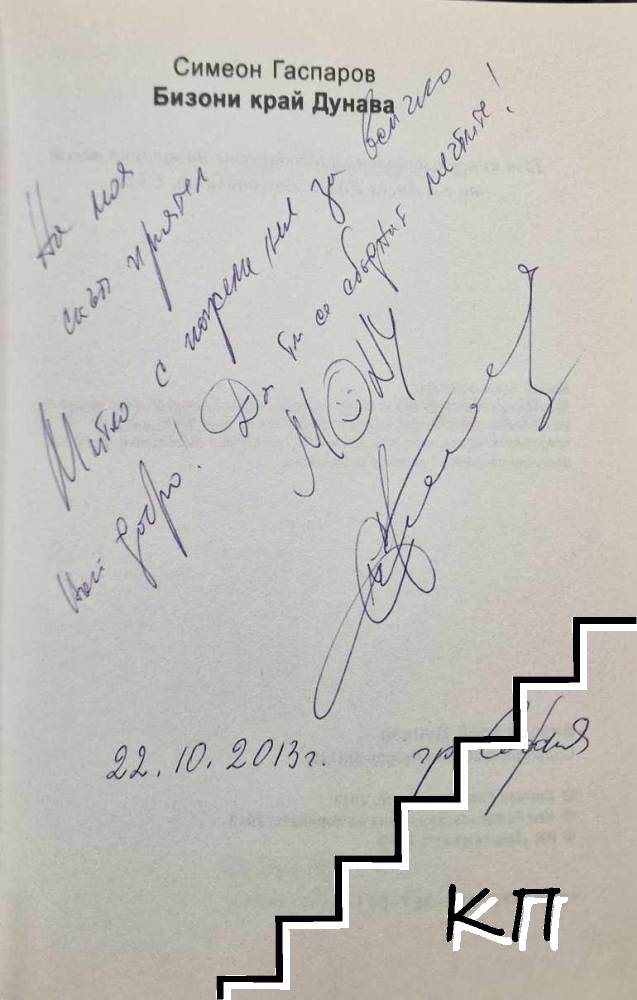 Симеон Гаспаров
Бизони край Дунава
На моя
скъп приятел
Митко с пожелания за всичко
най-добро! Да ти се сбъднат мечтите!
MONY
22.10.2013г. гр. София
КП